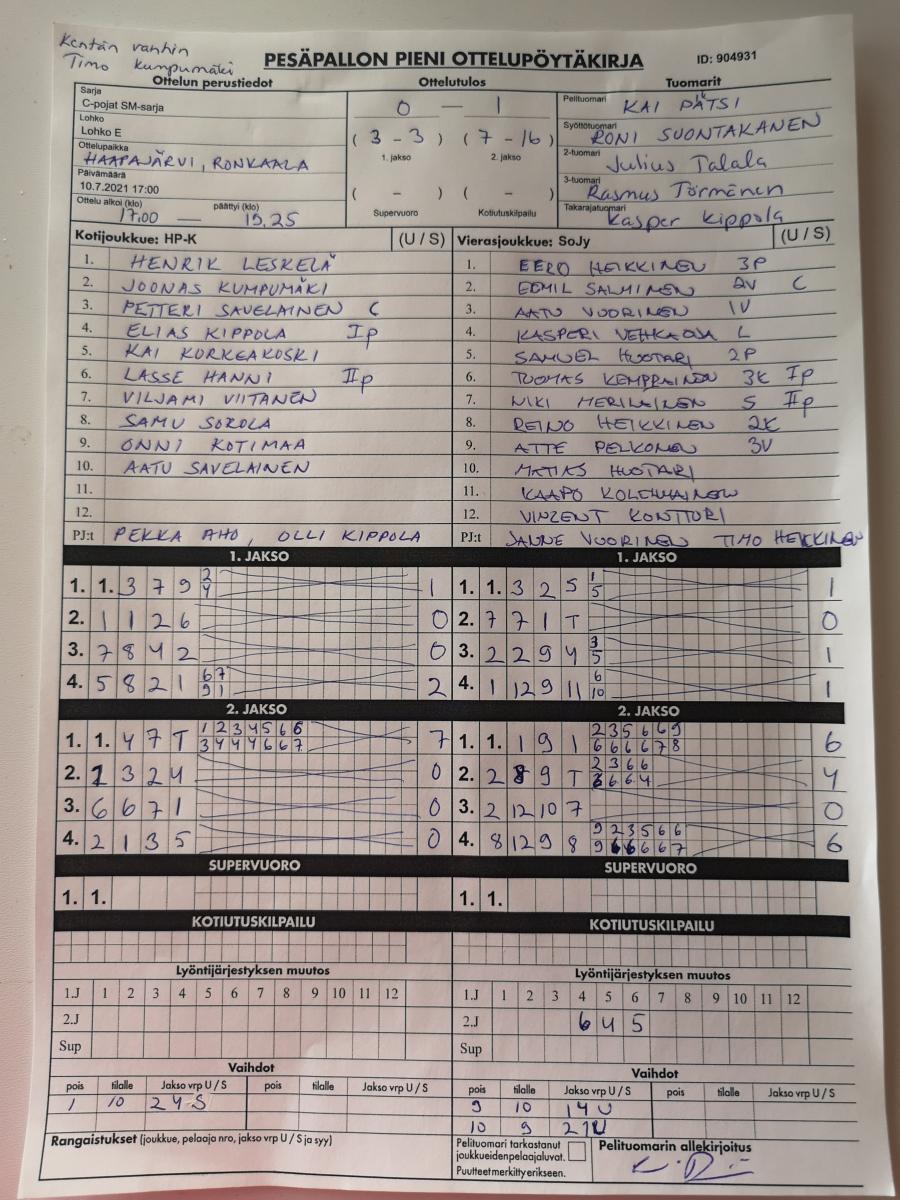 Kentän vanhin
Timo Kumpumäki
PESÄPALLON PIENI OTTELUPÖYTÄKIRJA
ID: 904931
Ottelun perustiedot
Sarja
C-pojat SM-sarja
Lohko
Lohko E
Ottelupaikka
HAAPAJÄRVI, RONKAALA
Päivämäärä
10.7.2021 17:00
Ottelu alkoi (klo) päättyi (klo)
17.00 — 19.25
Ottelutulos
0 — 1
(3 - 3) (7 - 16)
1. jakso 2. jakso
( - ) ( - )
Supervuoro Kotiutuskilpailu
Tuomarit
Pelituomari KAI PÄTSI
Syöttötuomari RONI SUONTAKANEN
2-tuomari Julius Talala
3-tuomari Rasmus Törmänen
Takarajatuomari Kasper Kippola
Kotijoukkue: HP-K (U / S)
1. HENRIK LESKELÄ
2. JOONAS KUMPUMÄKI
3. PETTERI SAVELAINEN C
4. ELIAS KIPPOLA Ip
5. KAI KORKEAKOSKI
6. LASSE HANNI IIp
7. VILJAMI VIITANEN
8. SAMU SOROLA
9. ONNI KOTIMAA
10. AATU SAVELAINEN
11.
12.
PJ:t PEKKA AHO, OLLI KIPPOLA
Vierasjoukkue: SoJy (U / S)
1. EERO HEIKKINEN 3P
2. EEMIL SALMINEN 2V C
3. AATU VUORINEN 1V
4. KASPERI VEHKAOJA L
5. SAMUEL HUOTARI 2P
6. TUOMAS KEMPPAINEN 3K Ip
7. NIKI MERILAINEN S IIp
8. REINO HEIKKINEN 2K
9. ATTE PELKONEN 3V
10. MATIAS HUOTARI
11. KAAPO KOLEHMAINEN
12. VINZENT KONTTORI
PJ:t JANNE VUORINEN TIMO HEIKKINEN
1. JAKSO
1. 1. 3 7 9 2 4 1
2. 1 1 2 6 0
3. 7 8 4 2 0
4. 5 8 2 1 6 7 2
9 1
1. JAKSO
1. 1. 3 2 5 1 5 1
2. 7 7 1 T 0
3. 2 2 9 4 3 5 1
4. 1 12 9 11 6 10 1
2. JAKSO
1. 1. 4 7 T 1 2 3 4 5 6 6 7
3 4 4 4 6 6 7
2. 1 3 2 4 0
3. 6 6 7 1 0
4. 2 1 3 5 0
2. JAKSO
1. 1. 1 9 1 2 3 5 6 6 9 6
6 6 6 6 7 8
2. 2 8 9 T 2 3 6 6 4
3 6 6 4
3. 2 12 10 7 0
4. 8 12 9 8 9 2 3 5 6 6 6
9 6 6 6 6 7
SUPERVUORO
1. 1.
SUPERVUORO
1. 1.
KOTIUTUSKILPAILU
KOTIUTUSKILPAILU
Lyöntijärjestyksen muutos
1.J 1 2 3 4 5 6 7 8 9 10 11 12
2.J
Sup
Lyöntijärjestyksen muutos
1.J 1 2 3 4 5 6 7 8 9 10 11 12
2.J 6 4 5
Sup
Vaihdot
pois tilalle Jakso vrp U / S pois tilalle Jakso vrp U / S
1 10 2 4 S
Vaihdot
pois tilalle Jakso vrp U / S pois tilalle Jakso vrp U / S
9 10 1 4 U
10 9 2 1 U
Rangaistukset (joukkue, pelaaja nro, jakso vrp U / S ja syy)
Pelituomari tarkastanut
joukkueidenpelaajaluvat.
Puutteet merkitty erikseen.
Pelituomarin allekirjoitus